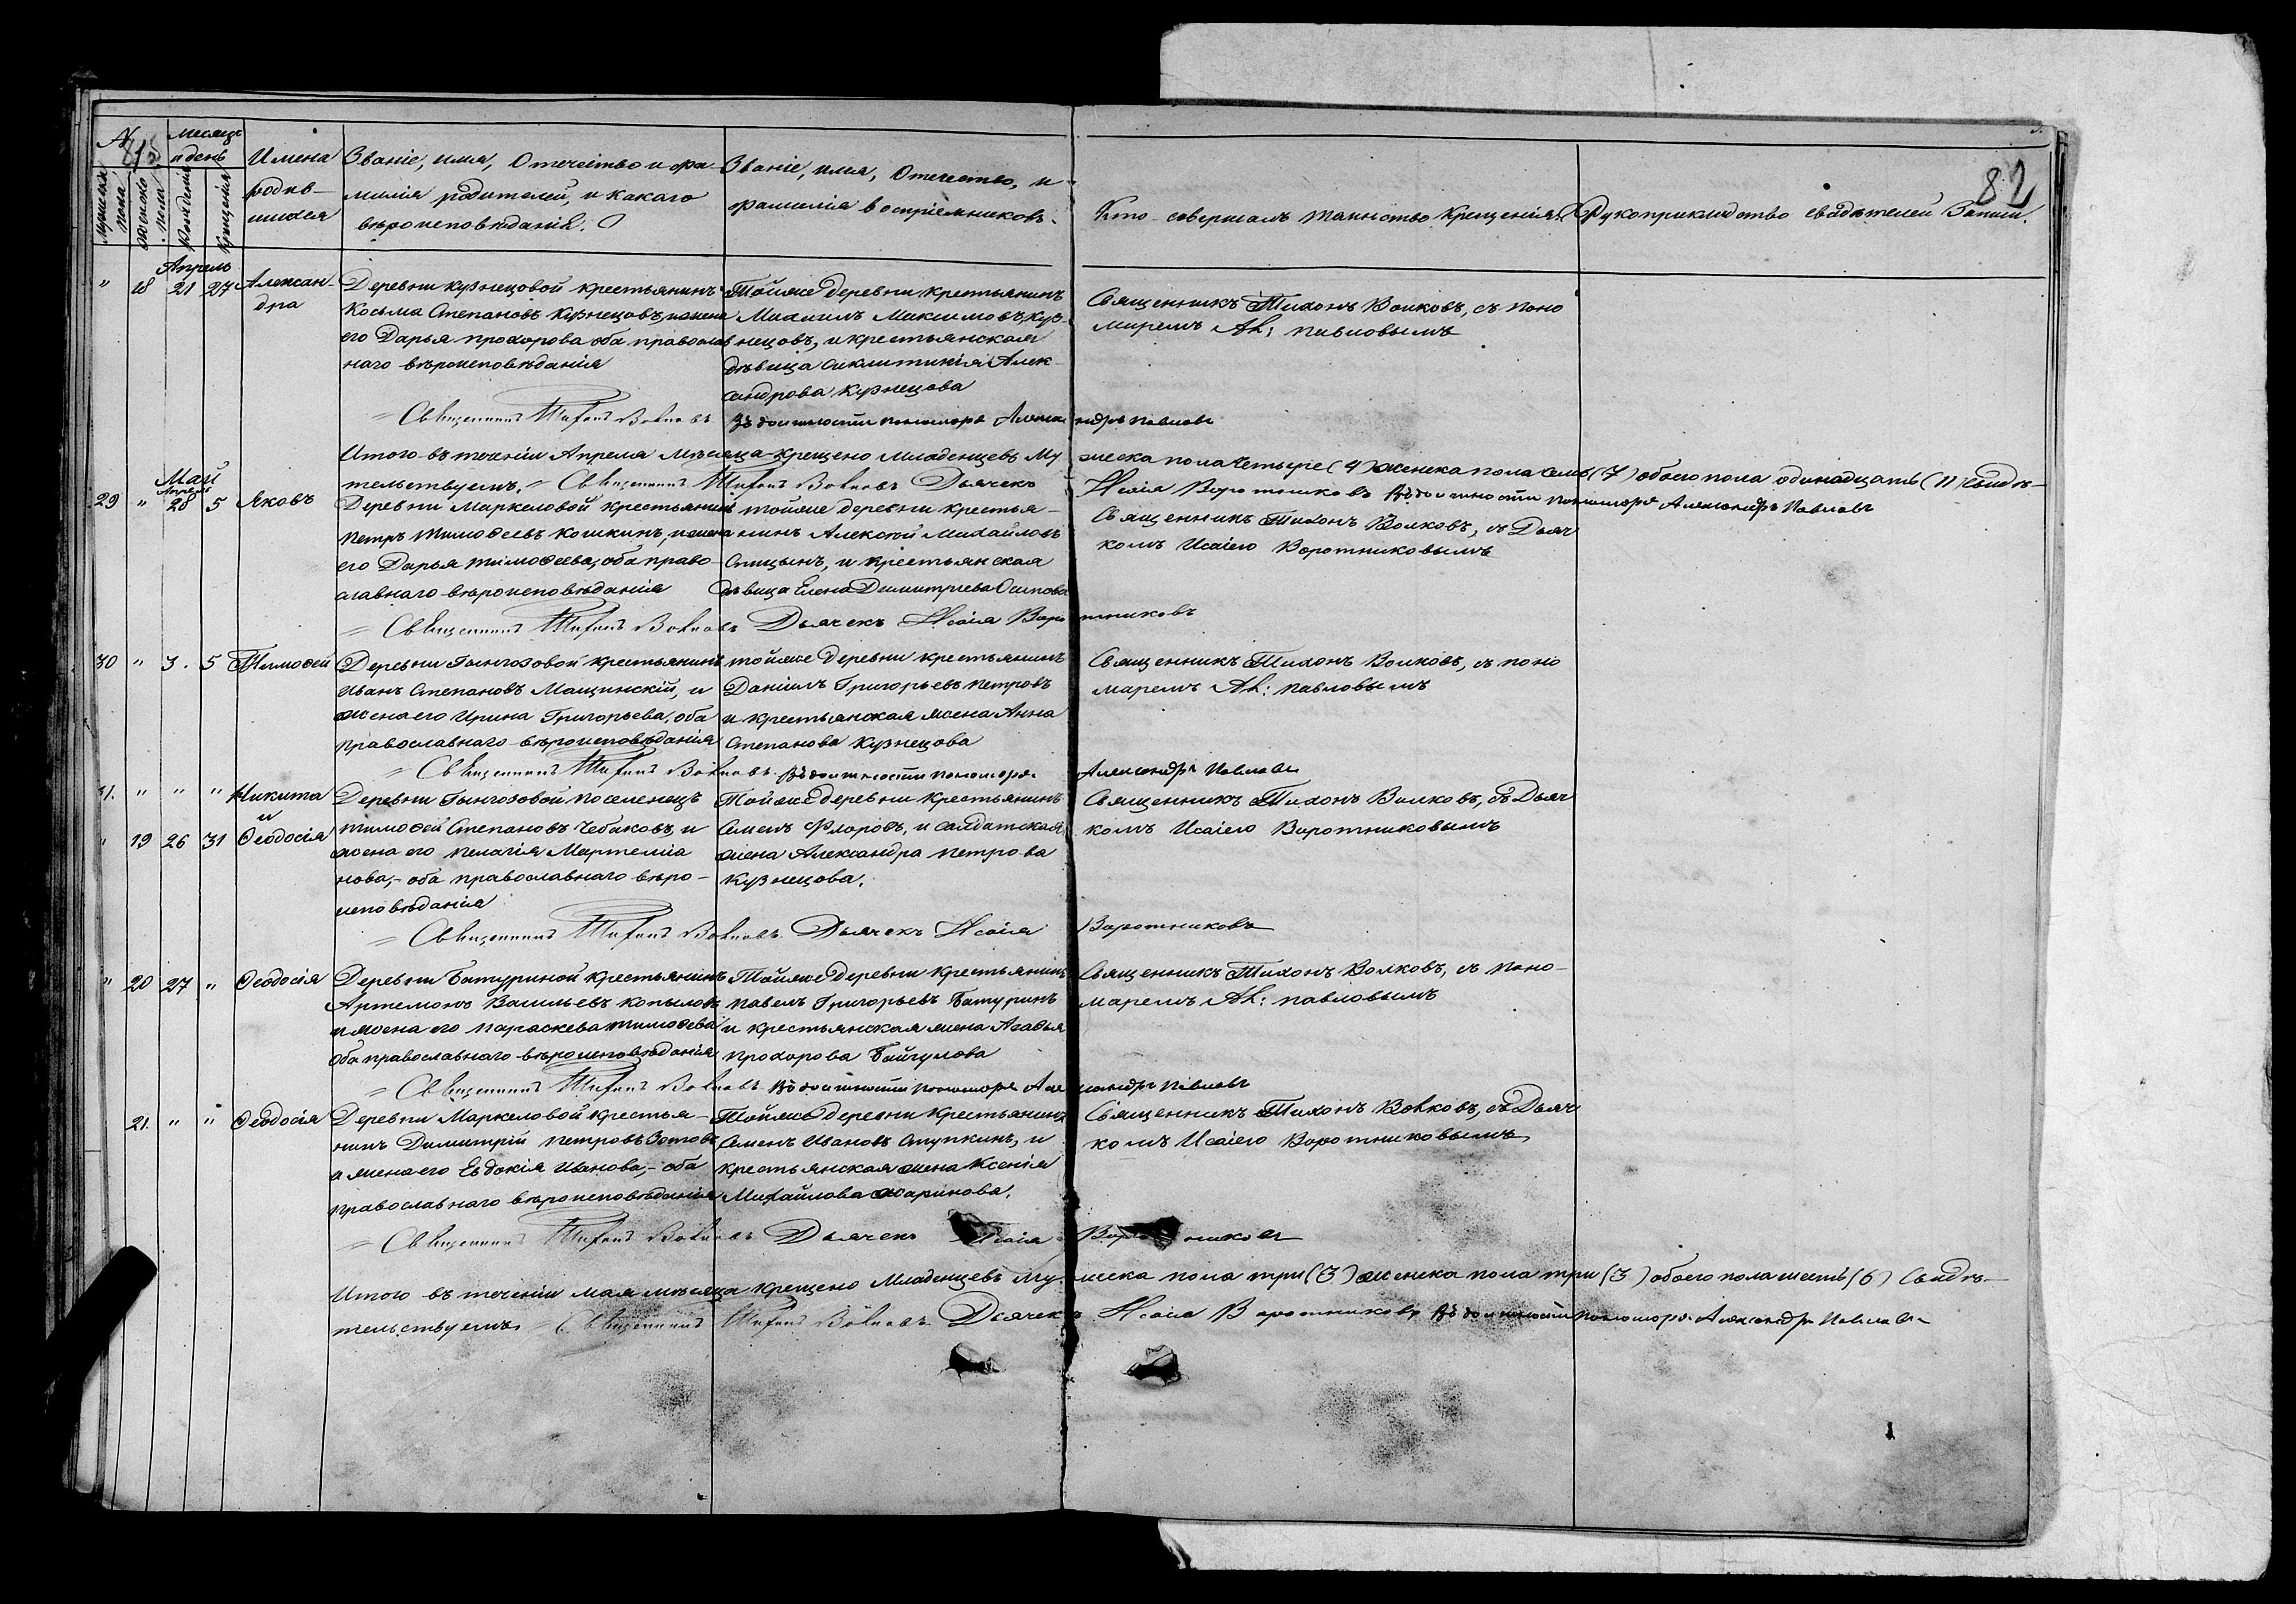 82
№
Месяцъ
и день
Мужеска пола
Женско пола
Рожденія
Крещенія
Имена
родив-
шихся
Званіе, имя, Отечество и фа-
милія родителей, и какаго
вѣроисповѣданія.
Званіе, имя, Отечество, и
фамилія воспріемниковъ.
Кто совершалъ таинство Крещенія
Рукоприкладство свидѣтелей Записи.
Апрель
" 18 21 27 Алексан-
дра
Деревни Кузнецовой крестьянинъ
Косьма Степановъ Кузнецовъ, и жена
его Дарья Прохорова оба православ
наго вѣроисповѣданія
Тойже деревни крестьянинъ
Михаилъ Максимовъ Куз-
нецовъ, и крестьянская
дѣвица Сиклитикія Алек
сандрова Кузнецова
Священникъ Тихонъ Волковъ, съ поно
маремъ Ал: Павловымъ
Священникъ Тихонъ Волковъ Въ должности пономаря Александръ Павловъ
Итого въ теченіи Апреля Мѣсяца крещено Младенцевъ Му жеска пола четыре (4) женска пола семь (7) обоего пола одинадцать (11) свидѣ-
тельствуемъ. Священникъ Тихонъ Волковъ Дьячекъ Исаія Воротниковъ Въ должности пономаря Александръ Павловъ
Май
Апрель
29 " 28 5 Яковъ
Деревни Маркеловой крестьянинъ
Петръ Тимофеевъ Кошкинъ, и жена
его Дарья Тимофеева, оба право-
славнаго вѣроисповѣданія
тойже деревни крестья-
нинъ Алексѣй Михайловъ
Спицынъ, и крестьянская
дѣвица Елена Димитріева Осипова
Священникъ Тихонъ Волковъ, съ Дьяч
комъ Исаіею Воротниковымъ
Священникъ Тихонъ Волковъ Дьячекъ Исаія Воротниковъ
30 " 3. 5 Тимофей
Деревни Гынгозовой крестьянинъ
Иванъ Степановъ Мащинскій, и
жена его Ирина Григорьева, оба
православнаго вѣроисповѣданія
тойже деревни крестьянинъ
Даніилъ Григорьевъ Петровъ
и крестьянская жена Анна
Степанова Кузнецова
Священникъ Тихонъ Волковъ, съ поно
маремъ Ал: Павловымъ
Священникъ Тихонъ Волковъ Въ должности пономаря Александръ Павловъ
31. " " " Никита
и
" 19 26 31 Феодосія
Деревни Гынгозовой поселенецъ
Тимофей Степановъ Чебаковъ, и
жена его Пелагія Мартеміа
нова,- оба православнаго вѣро-
исповѣданія
Тойже деревни крестьянинъ
Семенъ Флоровъ, и солдатская
жена Александра Петрова
Кузнецова.
Священникъ Тихонъ Волковъ, съ Дьяч
комъ Исаіею Воротниковымъ
Священникъ Тихонъ Волковъ Дьячекъ Исаія Воротниковъ
" 20 27 " Феодосія
Деревни Батуриной крестьянинъ
Артемонъ Васильевъ Копыловъ
и жена его Параскева Тимофеева
оба православнаго вѣроисповѣданія
Тойже деревни крестьянинъ
Павелъ Григорьевъ Батуринъ
и крестьянская жена Агафья
Прохорова Байгулова
Священникъ Тихонъ Волковъ, съ поно-
маремъ Ал: Павловымъ
Священникъ Тихонъ Волковъ Въ должности пономаря Александръ Павловъ
21. " " Феодосія
Деревни Маркеловой крестья-
нинъ Димитрій Петровъ Зотовъ
и жена его Евдокія Иванова,- оба
православнаго вѣроисповѣданія
Тойже деревни крестьянинъ
Семенъ Ивановъ Ступкинъ, и
крестьянская жена Ксенія
Михайлова Жаринова.
Священникъ Тихонъ Волковъ, съ Дьяч
комъ Исаіею Воротниковымъ
Священникъ Тихонъ Волковъ Дьячекъ Исаія Воротниковъ
Итого въ теченіи мая мѣсяца крещено Младенцевъ Му жеска пола три (3) женска пола три (3) обоего пола шесть (6) Свидѣ-
тельствуемъ Священникъ Тихонъ Волковъ Дьячекъ Исаія Воротниковъ Въ должности пономаря Александръ Павловъ